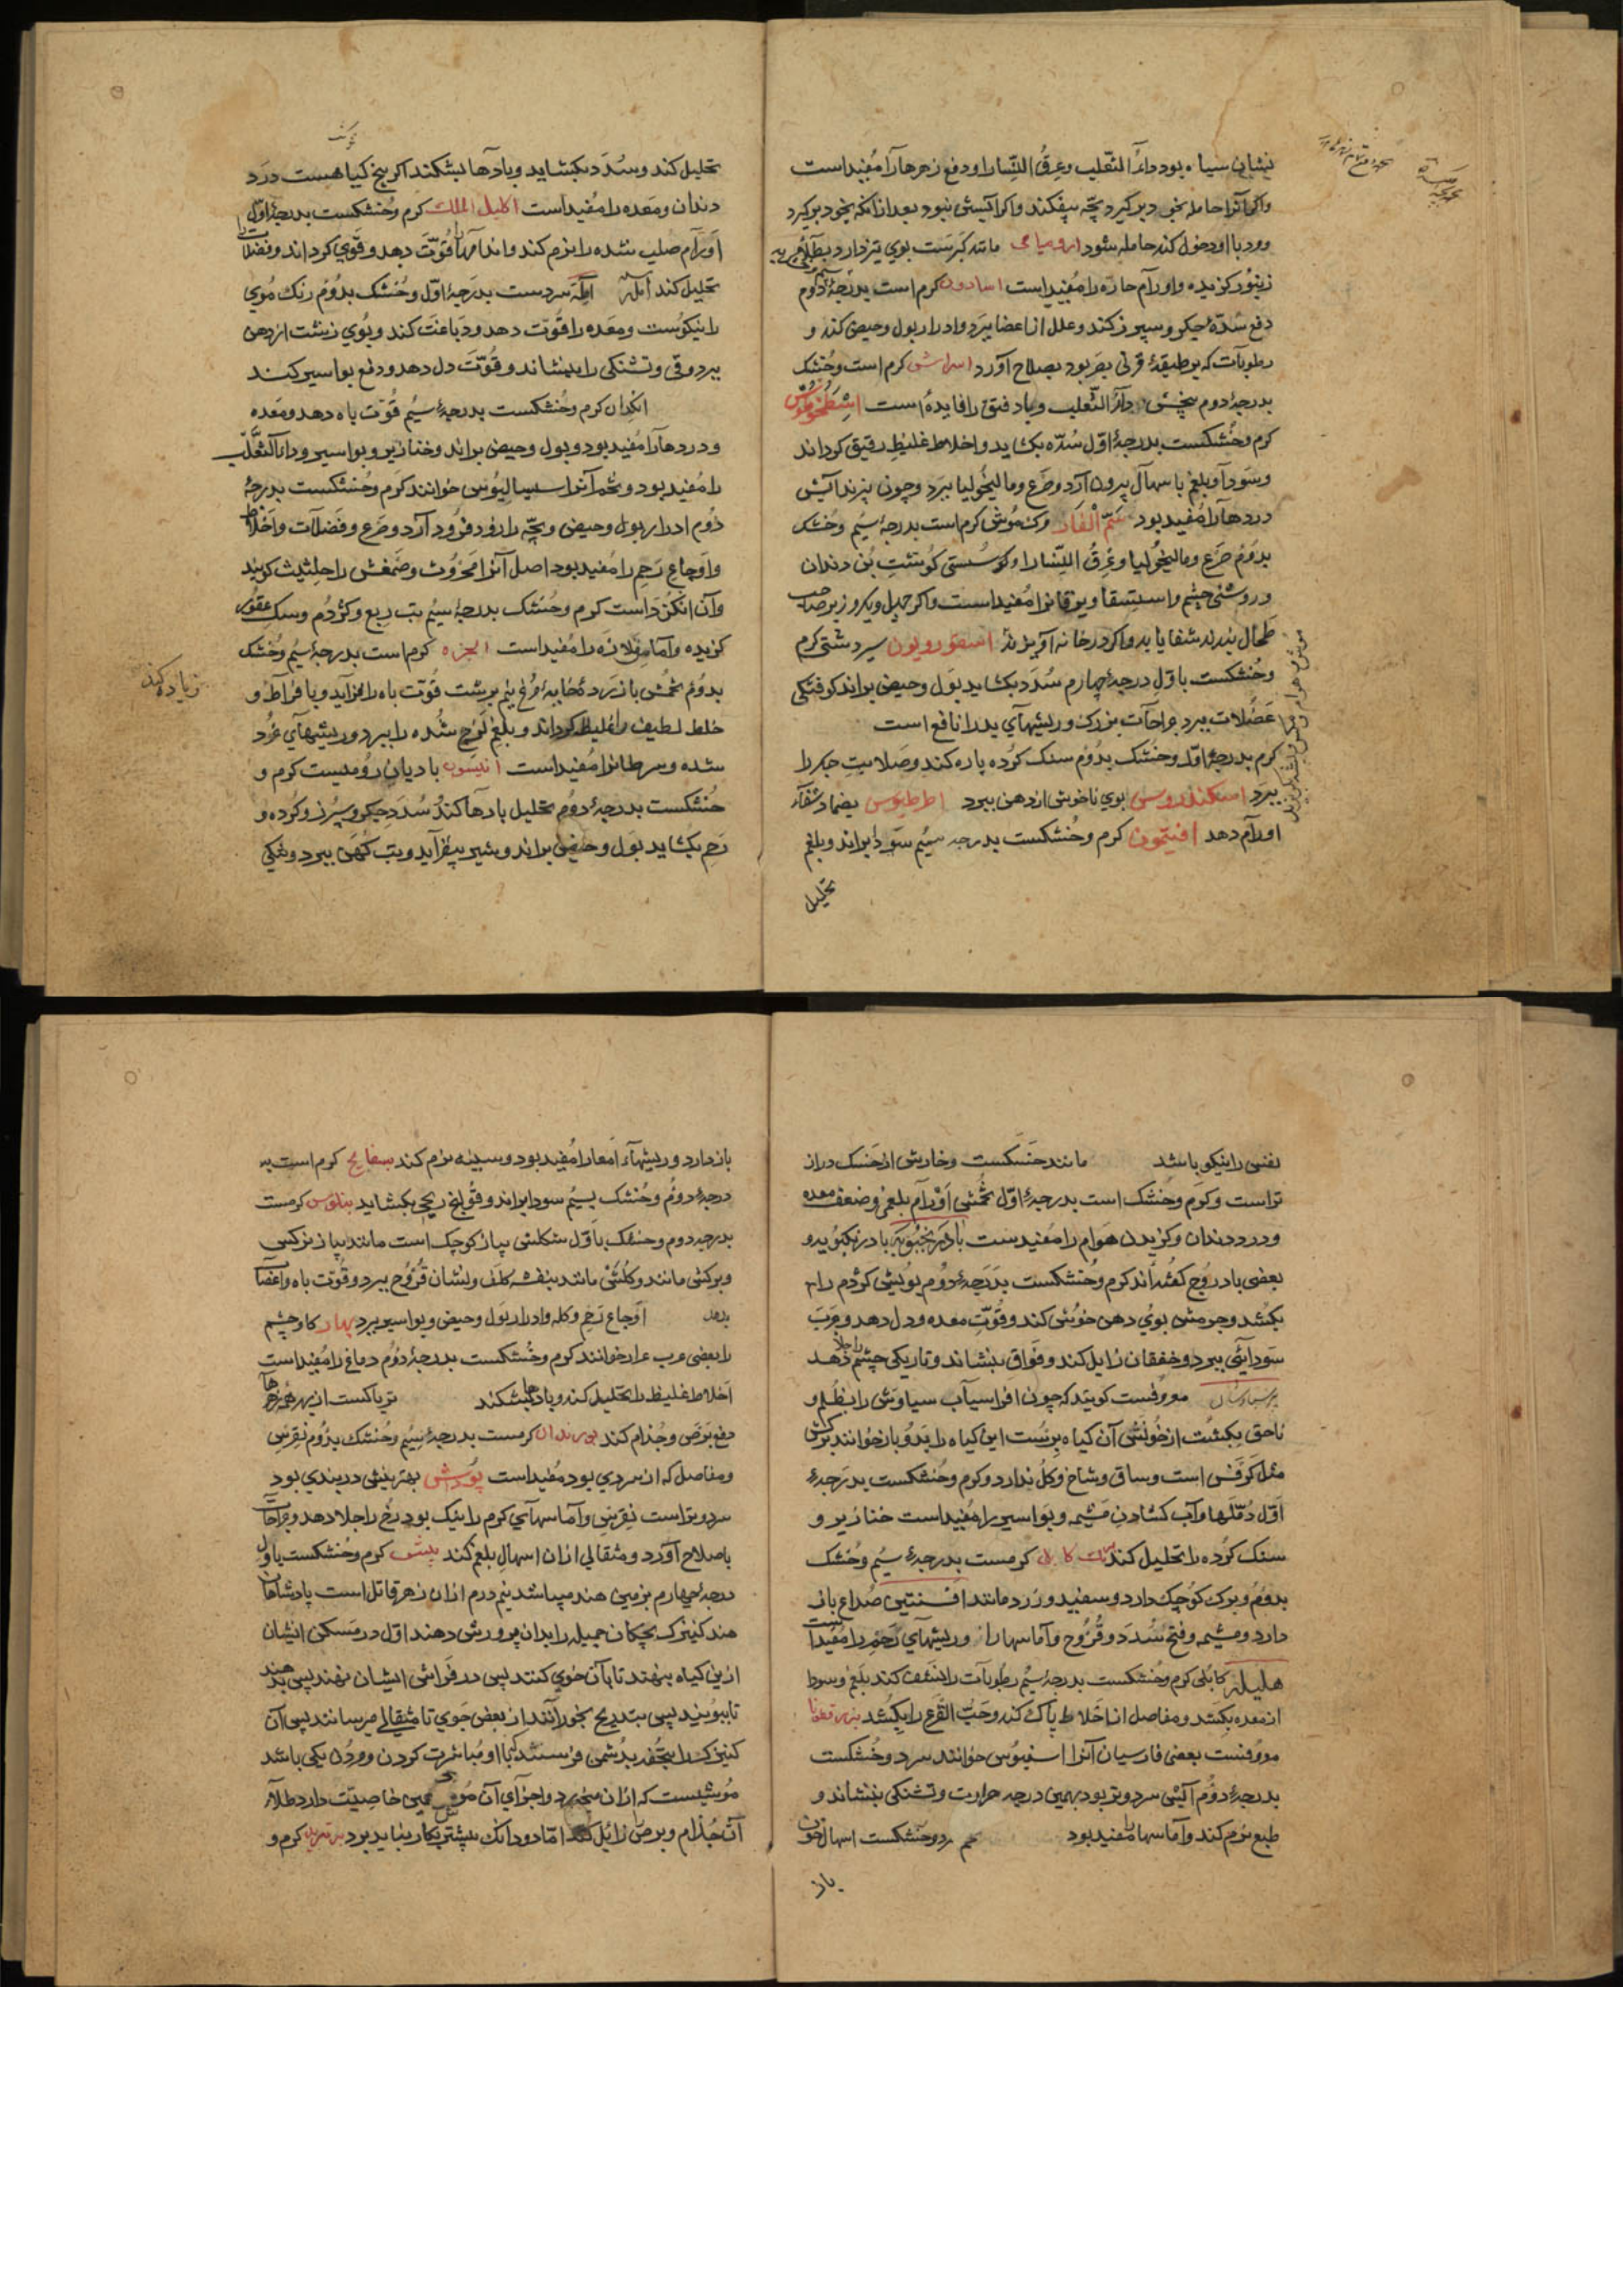 نشان سیاه بود داء الثعلب و عرق النسا را و دفع زهرها را مفید است
واکر آنرا حامله بخود برکیرد بچه بیفکند واکر آبستن نبود بعد از آنکه بخود برکیرد
و مرد با او دخول کند حامله شود مانند کبرست بوی تیز دارد
زنبور کزیده و اورام حاره را مفید است اسارون کرم است بدرجهٔ دوم
دفع سدّهٔ جکر و سپرز کند و علل از اعضا ببرد و ادرار بول و حیض کند و
رطوبات که بر طبقهٔ قرنی بصر بود بصلاح آورد اسراش کرم است و خشک
بدرجهٔ دوم بیخش داء الثعلب و باد فتق را فایده است
کرم و خشکست بدرجهٔ اوّل سدّه بکشاید و اخلاط غلیظ رقیق کرداند
و سودا و بلغم باسهال بیرون آرد و صرع و مالیخولیا ببرد و چون بپزند آبش
دردها را مفید بود سمّ الفار مرک موش کرم است بدرجهٔ سیم و خشک
بدوم صرع و مالیخولیا و عرق النسا را و سستی کوشت بن دندان
و روشنی چشم و استسقا و یرقان را مفید است واکر چهل و یکروز بر صاحب
طحال بندند شفا یابد واکر در خانه آویزند اسقوردیون سیر دشتی کرم
و خشکست باوّل درجهٔ چهارم سدد بکشاید بول و حیض براند کوفتکی
عضلات ببرد جراحات بزرک و ریشهای بد را نافع است
کرم بدرجهٔ اوّل و خشک بدوم سنک کرده پاره کند و صلابت جکر را
ببرد اسکندروس بوی ناخوش از دهن ببرد اططیوس بضماد شفاء
اورام دهد افتیمون کرم و خشکست بدرجه سیم سودا براند و بلغم
تحلیل
تحلیل کند و سدد بکشاید و بادها بشکند اکر بیخ کیاهست درد
دندان و معده را مفید است اکلیل الملک کرم و خشکست بدرجهٔ اوّل
اورام صلب شده را نرم کند و اندامها را قوّت دهد و قوی کرداند و فضلات
تحلیل کند آمله سردست بدرجهٔ اوّل و خشک بدوم رنک موی
را نیکوست و معده را قوّت دهد و دباغت کند و بوی زشت از دهن
ببرد و قی و تشنکی را بنشاند و قوّت دل دهد و دفع بواسیر کند
انکدان کرم و خشکست بدرجهٔ سیم قوّت باه دهد و معده
و دردها را مفید بود و بول و حیض براند و خنازیر و بواسیر و داء الثعلب
را مفید بود و تخم آنرا سیسالیوس خوانند کرم و خشکست بدرجهٔ
دوم ادرار بول و حیض و بچه را زود فرود آرد و صرع و فضلات و اخلاط
و اوجاع رحم را مفید بود اصل آنرا محروث و صمغش را حلتیت کویند
و آن انکژدست کرم و خشک بدرجهٔ سیم تب ربع و کژدم و سک عقور
کزیده و آماس ملازه را مفید است انجره کرم است بدرجهٔ سیم و خشک
بدوم تخمش با زردهٔ خایهٔ مرغ نیم برشت قوّت باه را فزاید و بافراط و
خلط لطیف را غلیظ کرداند و بلغم لزج شده را ببرد و ریشهای بد
شده و سرطان را مفید است انیسون بادیان رومیست کرم و
خشکست بدرجهٔ دوم تحلیل بادها کند سدد جکر و سپرز و کرده و
رحم بکشاید بول و حیض براند و شیر بیفزاید و تب کهن ببرد و تنکی
زیاده کند
نفس را نیکو باشد مانند حسکست و خارش از حسک دراز
تر است و کرم و خشک است بدرجهٔ اوّل تخمش اورام بلغمی و ضعف معده
و درد دندان و کزیدن هوام را مفید ست بادرنجبویه بادرنکبوید و
بعضی بادروج کفته اند کرم و خشکست بدرجهٔ دوم بویش کژدم را
بکشد و جرمش بوی دهن خوش کند و قوّت معده و دل دهد و جرب
سودایی ببرد و خفقان زایل کند و فواق بنشاند و تاریکی چشم را جلا دهد
پرسیاوشان معروفست کویند که چون افراسیاب سیاوش را بظلم و
ناحق بکشت از خونش آن کیاه برست این کیاه را بدو بازخوانند برکش
مثل کرفس است و ساق و شاخ و کل ندارد و کرم و خشکست بدرجهٔ
اوّل دملها و آب کشادن مشیمه و بواسیر را مفید است خنازیر و
سنک کرده را تحلیل کند برنک کابلی کرمست بدرجهٔ سیم و خشک
بدوم و برک کوچک دارد و سفید و زرد مانند افسنتین صداع باز
دارد و مشیمه و فتح سدد و قروح و آماسها را و ریشهای رحم را مفید است
هلیله کابلی کرم و خشکست بدرجهٔ سیم رطوبات را نشف کند بلغم و سودا
از معده بکشد و مفاصل از اخلاط پاک کند و حبّ القرع را بکشد بزرقطونا
معروفست بعضی فارسیان آنرا اسفیوش خوانند سرد و خشکست
بدرجهٔ دوم آبش سرد و تر بود بهمین درجه حرارت و تشنکی بنشاند و
طبع نرم کند و آماسها را مفید بود سرد و خشکست اسهال خون
باز
باز دارد و ریشهاء امعا را مفید بود و سینه نرم کند بسفایج کرم است به
درجهٔ دوم و خشک بسیم سودا براند و قولنج ریحی بکشاید بلبوس کرمست
بدرجه دوم و خشک باوّل شکلش پیاز کوچک است مانند پیاز نرکس
و برکش مانند و کلش مانند بنفشه کلف و نشان قروح ببرد و قوّت باه و اعضا
بدهد اوجاع رحم و کله و ادرار بول و حیض و بواسیر ببرد بهار کاوچشم
را بعضی عرب عرار خوانند کرم و خشکست بدرجهٔ دوم دماغ را مفید است
اخلاط غلیظ را تحلیل کند و بادها بشکند تریاکست از بهر همه زهرها
دفع برص و جذام کند بوزیدان کرمست بدرجهٔ سیم و خشک بدوم نقرس
و مفاصل که از سردی بود مفید است پوش بهترینش دربندی بود
سرد و تر است نقرس و آماسهای کرم را نیک بود رخ را جلا دهد و جراحات
باصلاح آورد و مثقالی از آن اسهال بلغم کند بیش کرم و خشکست باوّل
درجهٔ چهارم بزمین هند میباشد نیم درم از آن زهر قاتل است پادشاهان
هند کنیزک بچکان جمیله را بدان پرورش دهند اوّل در مسکن ایشان
ازین کیاه بنهند تا بآن خوی کنند پس در فراش ایشان نهند پس بدهند
تا ببویند پس بتدریج بخورانند از بعض جوی تا مثقالی میرسانند پس آن
کنیزک را بتحفه بدشمن فرستند تا با او مباشرت کردن و مردن یکی باشد
موشیست که از آن میخورد و اجزای آن موش همین خاصیت دارد طلاء
آن جذام و برص زایل کند امّا دو دانک بیشتر بکار نباید برد کرم و